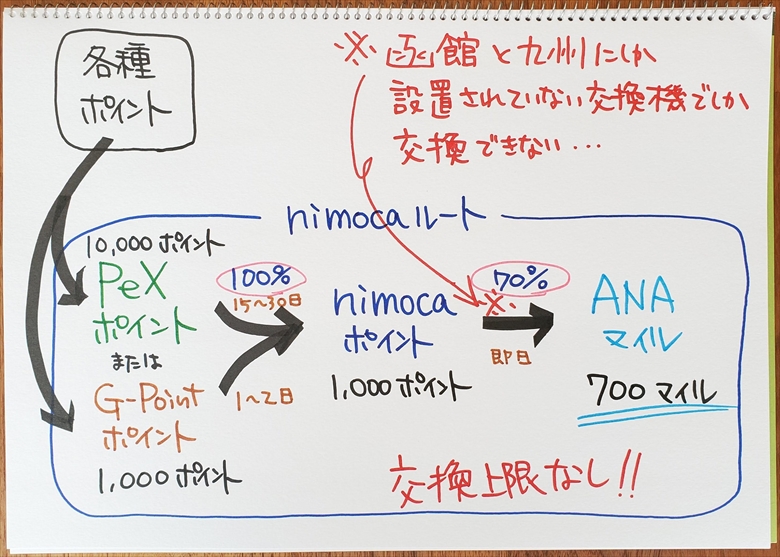 各種
ポイント
※函館と九州にしか
設置されていない交換機でしか
交換できない…
nimocaルート
10,000ポイント
PeX
ポイント
または
G-Point
ポイント
1,000ポイント
100%
15~30日
1~2日
nimoca
ポイント
1,000ポイント
70%
※
即日
ANA
マイル
700マイル
交換上限なし!!